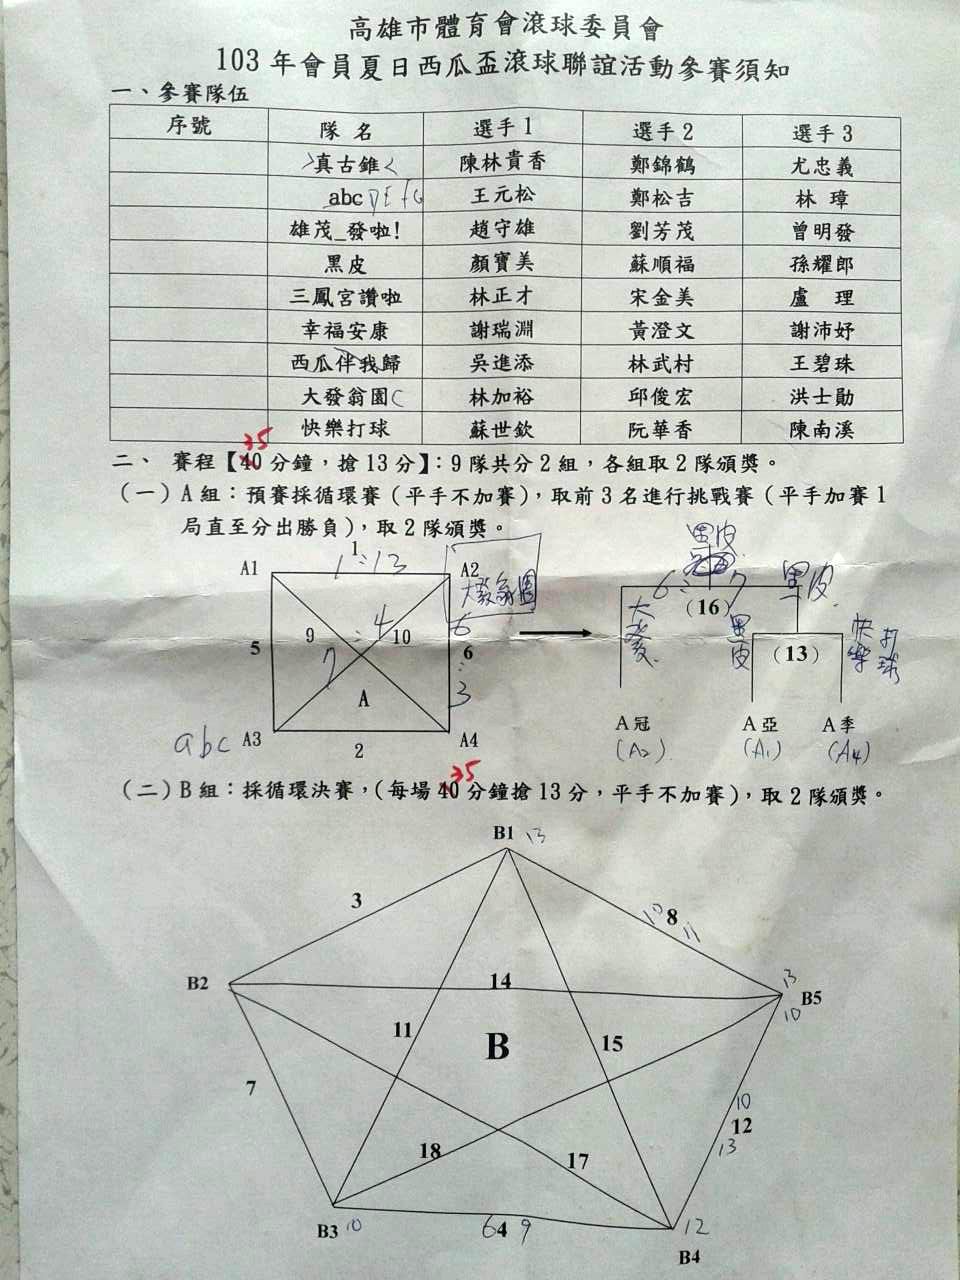 高雄市體育會滾球委員會
103年會員夏日西瓜盃滾球聯誼活動參賽須知
一、參賽隊伍
序號 隊名 選手1 選手2 選手3
真古錐 陳林貴香 鄭錦鶴 尤忠義
abc DEFG 王元松 鄭松吉 林璋
雄茂_發啦! 趙守雄 劉芳茂 曾明發
黑皮 顏寶美 蘇順福 孫耀郎
三鳳宮讚啦 林正才 宋金美 盧 理
幸福安康 謝瑞淵 黃澄文 謝沛妤
西瓜伴我歸 吳進添 林武村 王碧珠
大發翁園 林加裕 邱俊宏 洪士勛
快樂打球 蘇世欽 阮華香 陳南溪
35
二、 賽程【40分鐘，搶13分】：9隊共分2組，各組取2隊頒獎。
（一）A組：預賽採循環賽（平手不加賽），取前3名進行挑戰賽（平手加賽1
局直至分出勝負），取2隊頒獎。
黑皮
1
A1 1:13 A2
大發翁園
6:7 黑皮
(16)
5 9 4 10 6
: 6:3
7
A
大發 黑皮 (13) 快樂打球
A冠 A亞 A季
(A2) (A1) (A4)
abc A3 2 A4
35
（二）B組：採循環決賽，（每場40分鐘搶13分，平手不加賽），取2隊頒獎。
B1 13
3
10 8 11
B2 14 13 B5 10
11 B 15
7
10 12 13
18 17
B3 10 6 4 9 12
B4